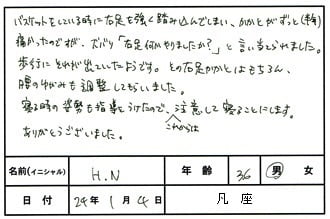 バスケットをしている時に右足を強く踏み込んでしまい、かかとがずっと(数年)
痛かったのですが、ズバリ「右足何かやりましたか?」と言い当てられました。
歩行にそれが出ていたようです。その右足かかとはもちろん、
腰のゆがみも調整してもらいました。
寝る時の姿勢も指導をうけたので、これからは注意して寝ることにします。
ありがとうございました。
名前(イニシャル) H.N 年齢 36 男 女
日付 24年 1月 4日 凡座